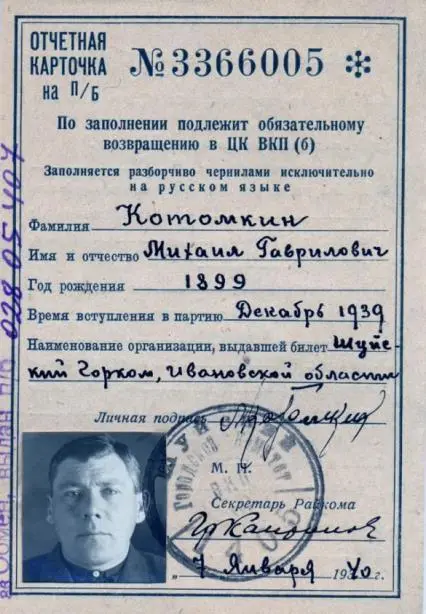 ОТЧЕТНАЯ
КАРТОЧКА
на П/Б
№3366005
По заполнении подлежит обязательному
возвращению в ЦК ВКП (б)
Заполняется разборчиво чернилами исключительно
на русском языке
Фамилия Котомкин
Имя и отчество Михаил Гаврилович
Год рождения 1899
Время вступления в партию Декабрь 1939
Наименование организации, выдавшей билет Шуйс-
кий Горком, Ивановской области
Личная подпись
М. П.
Секретарь Райкома
„7 Января 1940 г.
Обмен, выдан п/б
02805407